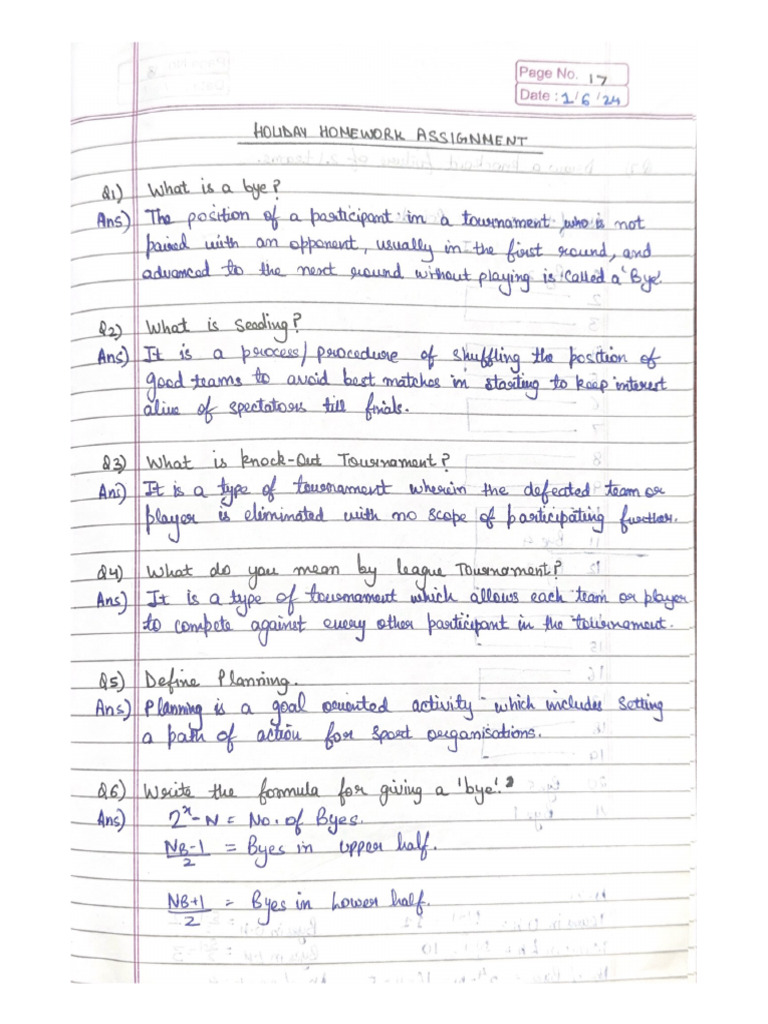 Page No. 17
Date : 1/6/24
HOLIDAY HOMEWORK ASSIGNMENT
Q1) What is a bye?
Ans) The position of a participant in a tournament, who is not
paired with an opponent, usually in the first round, and
advanced to the next round without playing is called a 'Bye'.
Q2) What is Seeding?
Ans) It is a process/procedure of shuffling the position of
good teams to avoid best matches in starting to keep interest
alive of spectators till finals.
Q3) What is Knock-Out Tournament?
Ans) It is a type of tournament wherein the defeated team or
player is eliminated with no scope of participating further.
Q4) What do you mean by league Tournament?
Ans) It is a type of tournament which allows each team or player
to compete against every other participant in the tournament.
Q5) Define Planning.
Ans) Planning is a goal oriented activity which includes setting
a path of action for sport organisations.
Q6) Write the formula for giving a 'bye'?
Ans) 2^x - N = No. of Byes.
NB-1/2 = Byes in upper half.
NB+1/2 = Byes in Lower half.